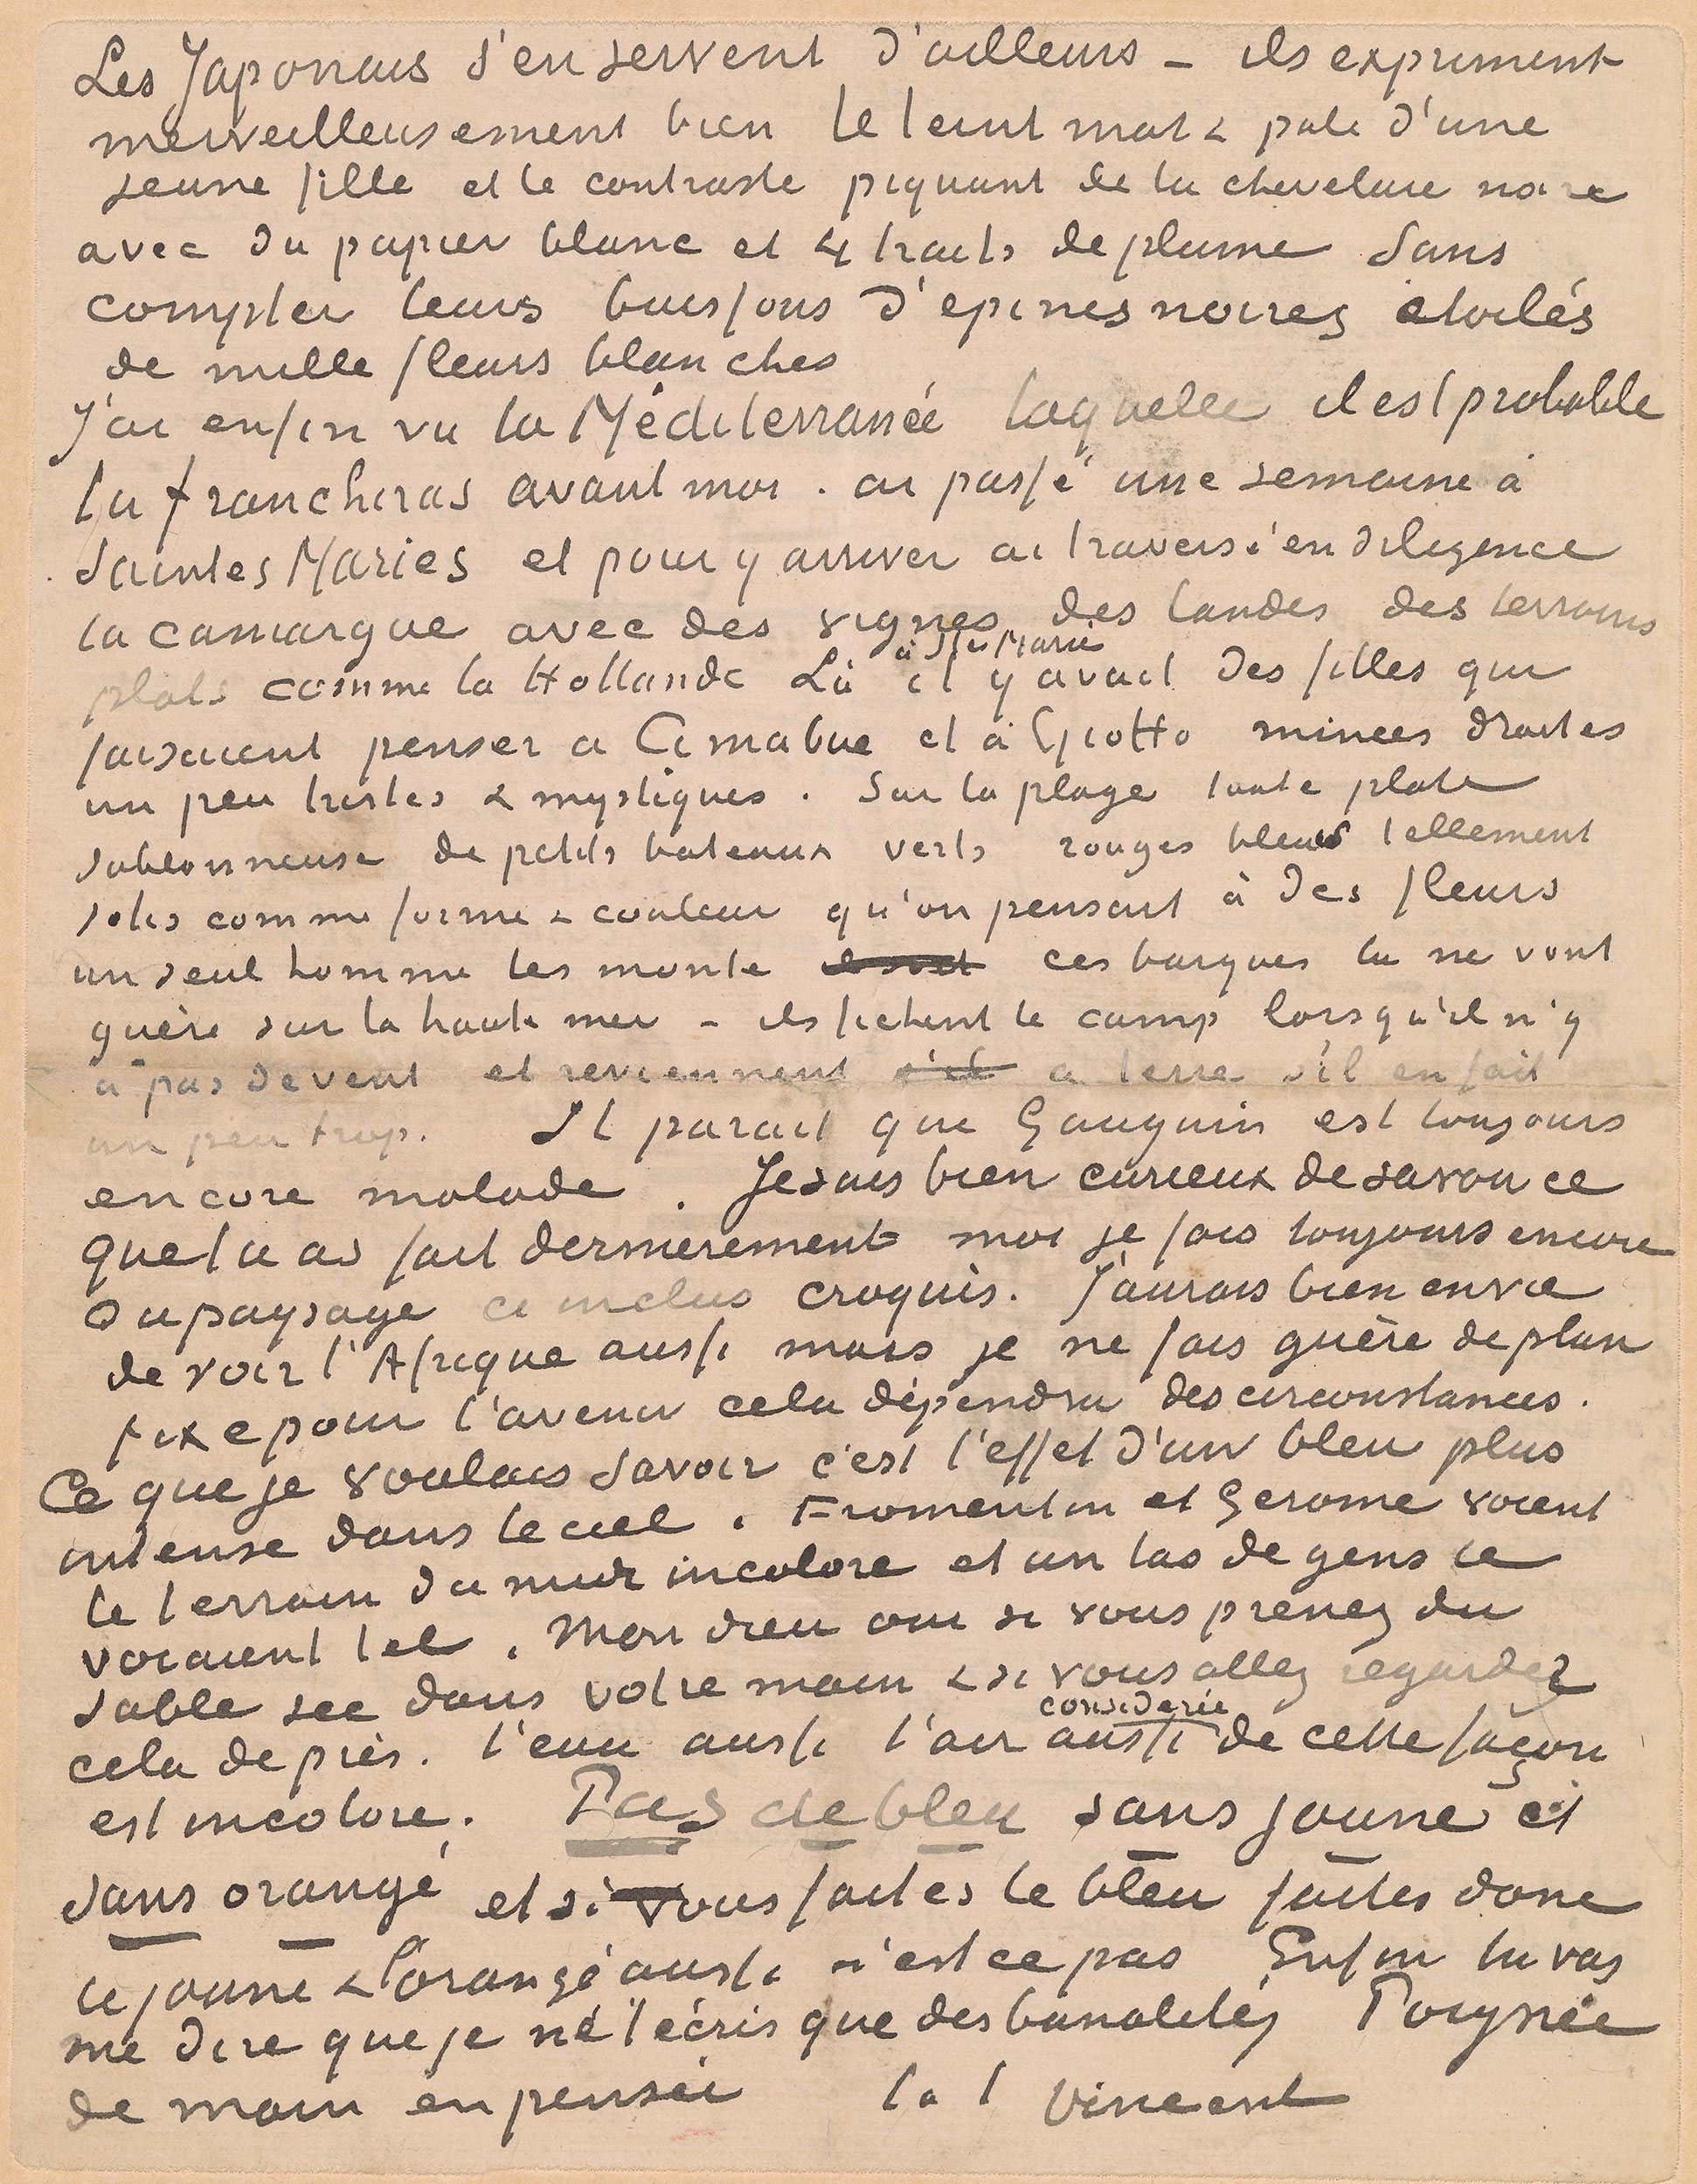 Les Japonais s'en servent d'ailleurs – ils expriment
merveilleusement bien le teint mat & pale d'une
jeune fille et le contraste piquant de la chevelure noire
avec du papier blanc et 4 traits de plume Sans
compter leurs buissons d'epines noires etoilés
de mille fleurs blanches
J'ai enfin vu la Méditerranée laquelle il est probable
tu franchiras avant moi . ai passé une semaine à
Saintes Maries et pour y arriver ai traversé en diligence
la camargue avec des vignes des landes des terrains
à Stes Maries
plats comme la Hollande Là il y avait des filles qui
faisaient penser a Cimabue et à Giotto minces droites
un peu tristes & mystiques . Sur la plage toute plate
sablonneuse de petits bateaux verts rouges bleus tellement
jolis comme forme & couleur qu'on pensait à des fleurs
un seul homme les monte ces barques la ne vont
guère sur la haute mer – ils fichent le camp lorsqu'il n'y
a pas de vent et reviennent a terre s'il en fait
un peu trop. Il parait que Gauguin est toujours
encore malade . Je suis bien curieux de savoir ce
que tu as fait dernierement moi je fais toujours encore
du paysage ci inclus croquis. J'aurais bien envie
de voir l'Afrique aussi mais je ne fais guère de plan
fixe pour l'avenir cela dépendra des circonstances .
Ce que je voulais savoir c'est l'effet d'un bleu plus
intense dans le ciel . Fromentin et Gerome voient
le terrain du midi incolore et un tas de gens le
voiaient tel . Mon dieu oui si vous prenez du
sable sec dans votre main & si vous allez regarder
considerée
cela de près. l'eau aussi l'air aussi de cette façon
est incolore. Pas de bleu sans jaune et
sans orangé et si vous faites le bleu faites donc
le jaune & l'orangé aussi n'est ce pas Enfin tu vas
me dire que je ne t'écris que des banalités Poignée
de main en pensée t à t Vincent